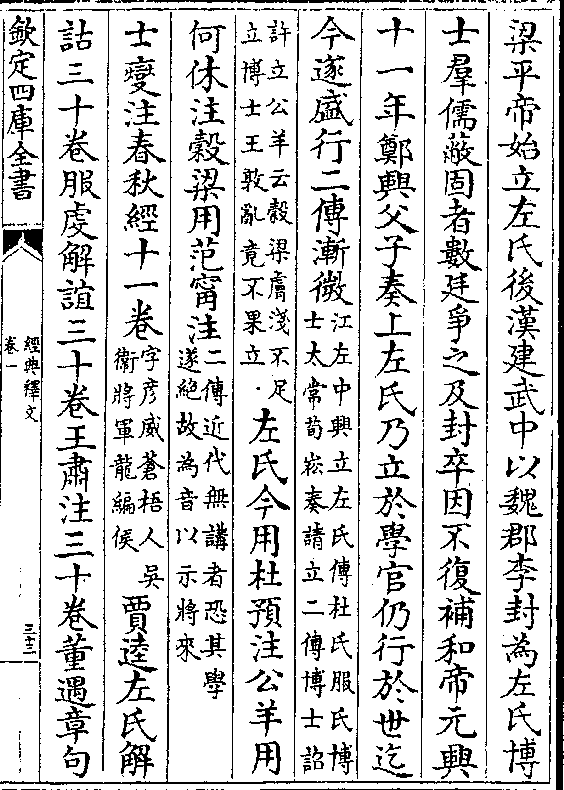 梁平帝始立左氏後漢建武中以魏郡李封為左氏博
士羣儒蔽固者數廷爭之及封卒因不復補和帝元興
十一年鄭興父子奏上左氏乃立於學官仍行於世迄
今遂盛行二傳漸微江左中興立左氏傳杜氏服氏博士太常荀崧奏請立二傳博士詔
許立公羊云穀梁膚淺不足立博士王敦亂竟不果立左氏今用杜預注公羊用
何休注穀梁用范甯注二傳近代無講者恐其學遂絶故為音以示將來
士燮注春秋經十一卷字彦威蒼梧人吳衛將軍龍編侯賈逵左氏解
詁三十卷服虔解誼三十卷王肅注三十卷董遇章句
欽定四庫全書
經典釋文
卷一
三十二